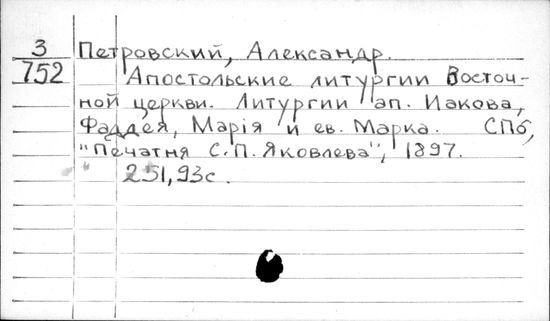 3 Петровский, Александр.
752 Апостольские литургии Восточ-
ной церкви. Литургии ап. Иакова,
Фаддея, Марiя и ев. Марка. СПб,
"Печатня С.П. Яковлева", 1897.
251,93с.